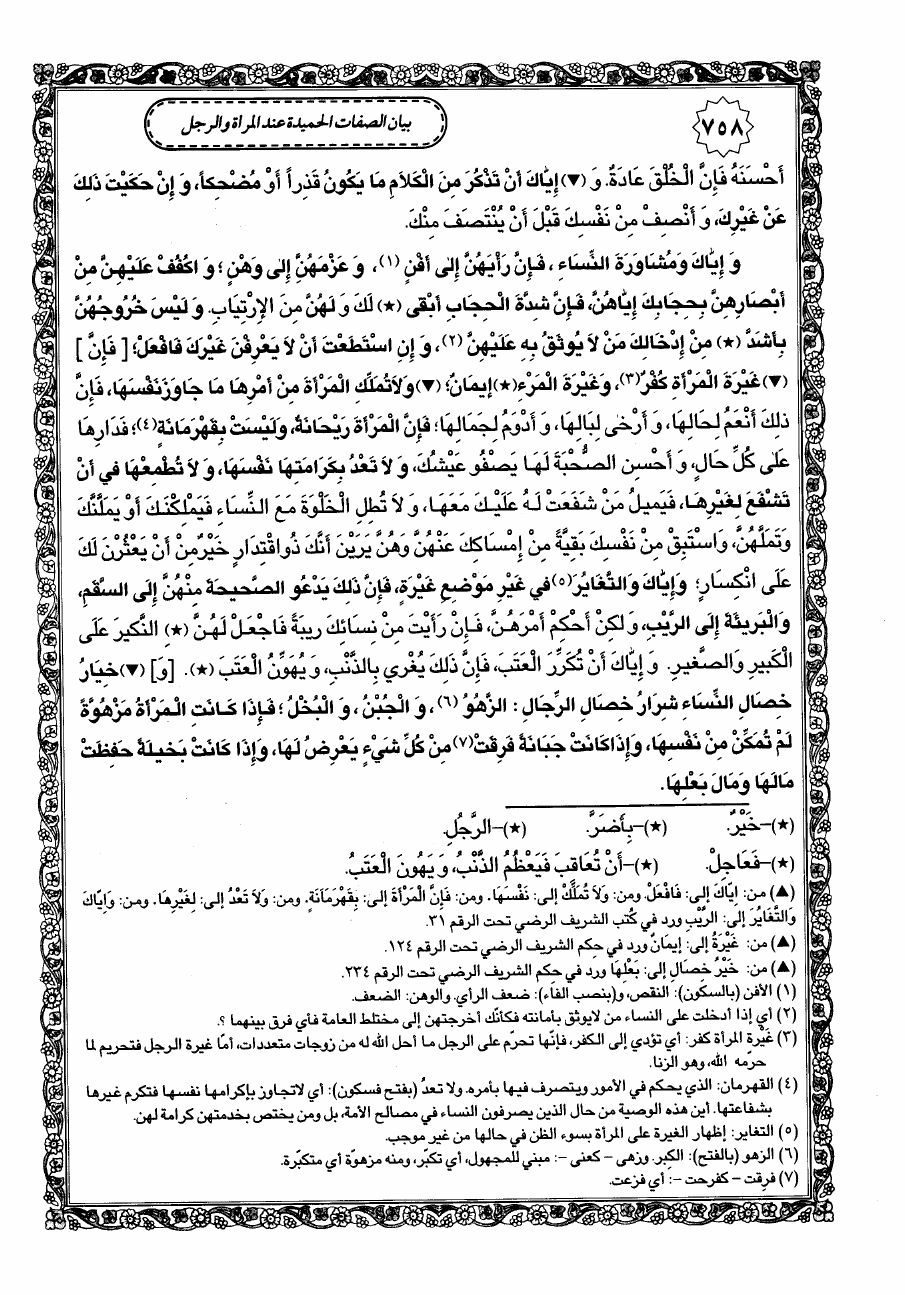 ٧٥٨
بيان الصفات الحميدة عند المرأة والرجل
أَحْسَنَهُ فَإِنَّ الْخُلْقَ عَادَةٌ. وَ (▼) إِيَّاكَ أَنْ تَذْكُرَ مِنَ الْكَلَامِ مَا يَكُونُ قَذِراً أَوْ مُضْحِكاً، وَ إِنْ حَكَيْتَ ذَلِكَ
عَنْ غَيْرِكَ، وَ أَنْصِفْ مِنْ نَفْسِكَ قَبْلَ أَنْ يُنْتَصَفَ مِنْكَ.
وَ إِيَّاكَ وَمُشَاوَرَةَ النِّسَاءِ، فَإِنَّ رَأْيَهُنَّ إِلَى أَفْنٍ (١)، وَ عَزْمَهُنَّ إِلَى وَهْنٍ؛ وَ اكْفُفْ عَلَيْهِنَّ مِنْ
أَبْصَارِهِنَّ بِحِجَابِكَ إِيَّاهُنَّ، فَإِنَّ شِدَّةَ الْحِجَابِ أَبْقَى (★) لَكَ وَ لَهُنَّ مِنَ الِارْتِيَابِ. وَ لَيْسَ خُرُوجُهُنَّ
بِأَشَدَّ (★) مِنْ إِدْخَالِكَ مَنْ لَا يُوثَقُ بِهِ عَلَيْهِنَّ (٢)، وَ إِنِ اسْتَطَعْتَ أَنْ لَا يَعْرِفْنَ غَيْرَكَ فَافْعَلْ؛ [ فَإِنَّ ]
(▼) غَيْرَةَ الْمَرْأَةِ كُفْرٌ (٣)، وَغَيْرَةَ الْمَرْءِ (★) إِيمَانٌ؛ (▼) وَلَا تُمَلِّكِ الْمَرْأَةَ مِنْ أَمْرِهَا مَا جَاوَزَ نَفْسَهَا، فَإِنَّ
ذَلِكَ أَنْعَمُ لِحَالِهَا، وَ أَرْخَى لِبَالِهَا، وَ أَدْوَمُ لِجَمَالِهَا؛ فَإِنَّ الْمَرْأَةَ رَيْحَانَةٌ، وَلَيْسَتْ بِقَهْرَمَانَةٍ (٤)؛ فَدَارِهَا
عَلَى كُلِّ حَالٍ، وَ أَحْسِنِ الصُّحْبَةَ لَهَا يَصْفُو عَيْشُكَ، وَ لَا تَعْدُ بِكَرَامَتِهَا نَفْسَهَا، وَ لَا تُطْمِعْهَا في أَنْ
تَشْفَعَ لِغَيْرِهَا، فَيَمِيلُ مَنْ شَفَعَتْ لَهُ عَلَيْكَ مَعَهَا، وَ لَا تُطِلِ الْخَلْوَةَ مَعَ النِّسَاءِ فَيَمْلِكْنَكَ أَوْ يَمْلَلْنَكَ
وَتَمَلَّهُنَّ، وَاسْتَبْقِ مِنْ نَفْسِكَ بَقِيَّةً مِنْ إِمْسَاكِكَ عَنْهُنَّ وَهُنَّ يَرَيْنَ أَنَّكَ ذُو اقْتِدَارٍ خَيْرٌ مِنْ أَنْ يَعْثُرْنَ لَكَ
عَلَى انْكِسَارٍ؛ وَإِيَّاكَ وَالتَّغَايُرَ (٥) في غَيْرِ مَوْضِعِ غَيْرَةٍ، فَإِنَّ ذَلِكَ يَدْعُو الصَّحِيحَةَ مِنْهُنَّ إِلَى السَّقَمِ،
وَالْبَرِيئَةَ إِلَى الرَّيْبِ، وَ لَكِنْ أَحْكِمْ أَمْرَهُنَّ، فَإِنْ رَأَيْتَ مِنْ نِسَائِكَ رِيبَةً فَاجْعَلْ لَهُنَّ (★) النَّكِيرَ عَلَى
الْكَبِيرِ وَالصَّغِيرِ. وَ إِيَّاكَ أَنْ تُكَرِّرَ الْعَتَبَ، فَإِنَّ ذَلِكَ يُغْرِي بِالذَّنْبِ، وَ يُهَوِّنُ الْعَتَبَ (★). [وَ] (▼) خِيَارُ
خِصَالِ النِّسَاءِ شِرَارُ خِصَالِ الرِّجَالِ : الزَّهْوُ (٦)، وَ الْجُبْنُ، وَ الْبُخْلُ؛ فَإِذَا كَانَتِ الْمَرْأَةُ مَزْهُوَّةً
لَمْ تُمَكِّنْ مِنْ نَفْسِهَا، وَإِذَا كَانَتْ جَبَانَةً فَرِقَتْ (٧) مِنْ كُلِّ شَيْءٍ يَعْرِضُ لَهَا، وَإِذَا كَانَتْ بَخِيلَةً حَفِظَتْ
مَالَهَا وَمَالَ بَعْلِهَا.
(★)–خَيْرٌ. (★)–بِأَضَرَّ. (★)–الرَّجُلِ.
(★)–فَعَاجِلْ. (★)–أَنْ تُعَاقِبَ فَيَعْظُمُ الذَّنْبُ، وَ يَهُونَ الْعَتَبُ.
(▲) من: إِيَّاكَ إلى: فَافْعَلْ. ومن: وَلَا تُمَلِّكْ إلى: نَفْسَهَا. ومن: فَإِنَّ الْمَرْأَةَ إلى: بِقَهْرَمَانَةٍ. ومن: وَلَا تَعْدُ إلى: لِغَيْرِهَا. ومن: وَإِيَّاكَ
وَالتَّغَايُرَ إلى: الرَّيْبِ ورد في كُتب الشريف الرضي تحت الرقم ٣١.
(▲) من: غَيْرَةُ إلى: إيمَانٌ ورد في حكم الشريف الرضي تحت الرقم ١٢٤.
(▲) من: خَيْرُ خِصَالِ إلى: بَعْلِهَا ورد في حكم الشريف الرضي تحت الرقم ٢٣٤.
(١) الأفن (بالسكون): النقص، و(بنصب الفاء): ضعف الرأي. والوهن: الضعف.
(٢) أي إذا أدخلت على النساء من لايوثق بأمانته فكأنك أخرجتهن إلى مختلط العامة فأي فرق بينهما ؟.
(٣) غَيْرة المرأة كفر: أي تؤدي إلى الكفر، فإنّها تحرّم على الرجل ما أحل الله له من زوجات متعددات، أمّا غيرة الرجل فتحريم لما
حرّمه الله، وهو الزنا.
(٤) القهرمان: الذي يحكم في الأمور ويتصرف فيها بأمره. ولا تعدُ (بفتح فسكون): أي لاتجاوز بإكرامها نفسها فتكرم غيرها
بشفاعتها. أين هذه الوصية من حال الذين يصرفون النساء في مصالح الأمة، بل ومن يختص بخدمتهن كرامة لهن.
(٥) التغاير: إظهار الغيرة على المرأة بسوء الظن في حالها من غير موجب.
(٦) الزهو (بالفتح): الكِبر. وزهي – كعني –: مبني للمجهول، أي تكبّر، ومنه مزهوّة أي متكبّرة.
(٧) فرِقت – كفرحت –: أي فزعت.